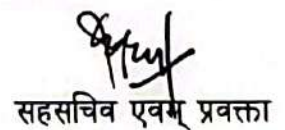 सहसचिव एवम् प्रवक्ता